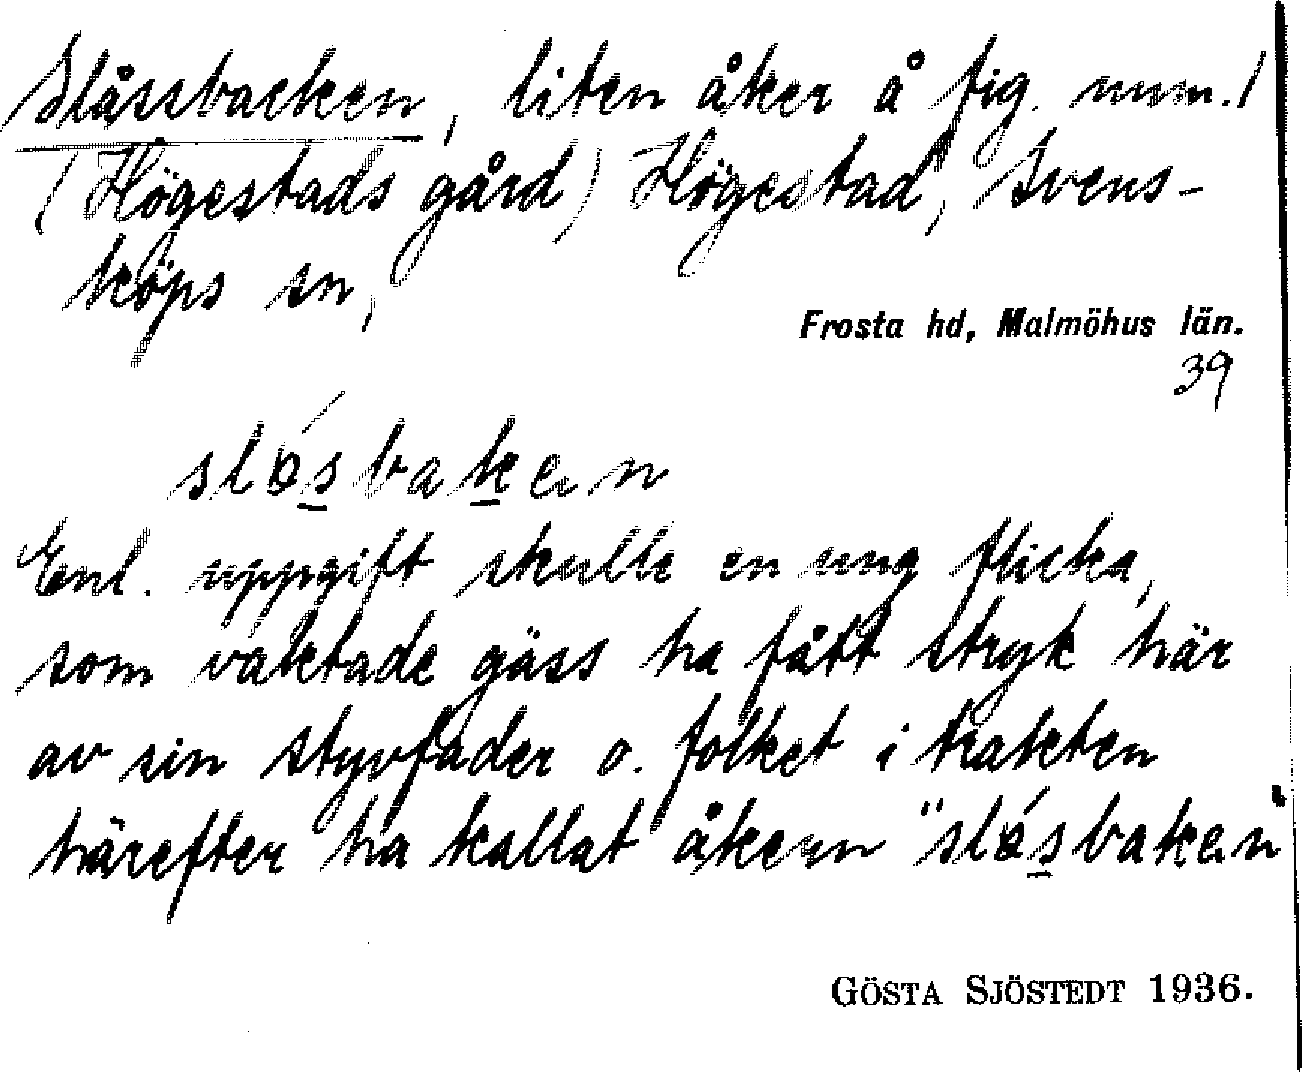 Slåssbacken, liten åker å fig. num. 1
(Högestads gård) Högestad, Svens-
köps sn,
Frosta hd, Malmöhus län.
39
slósbakan
Enl. uppgift skulle en ung flicka,
som vaktade gäss ha fått stryk här
av sin styvfader o. folket i trakten
härefter ha kallat åkern "slósbakan"
GÖSTA SJÖSTEDT 1936.